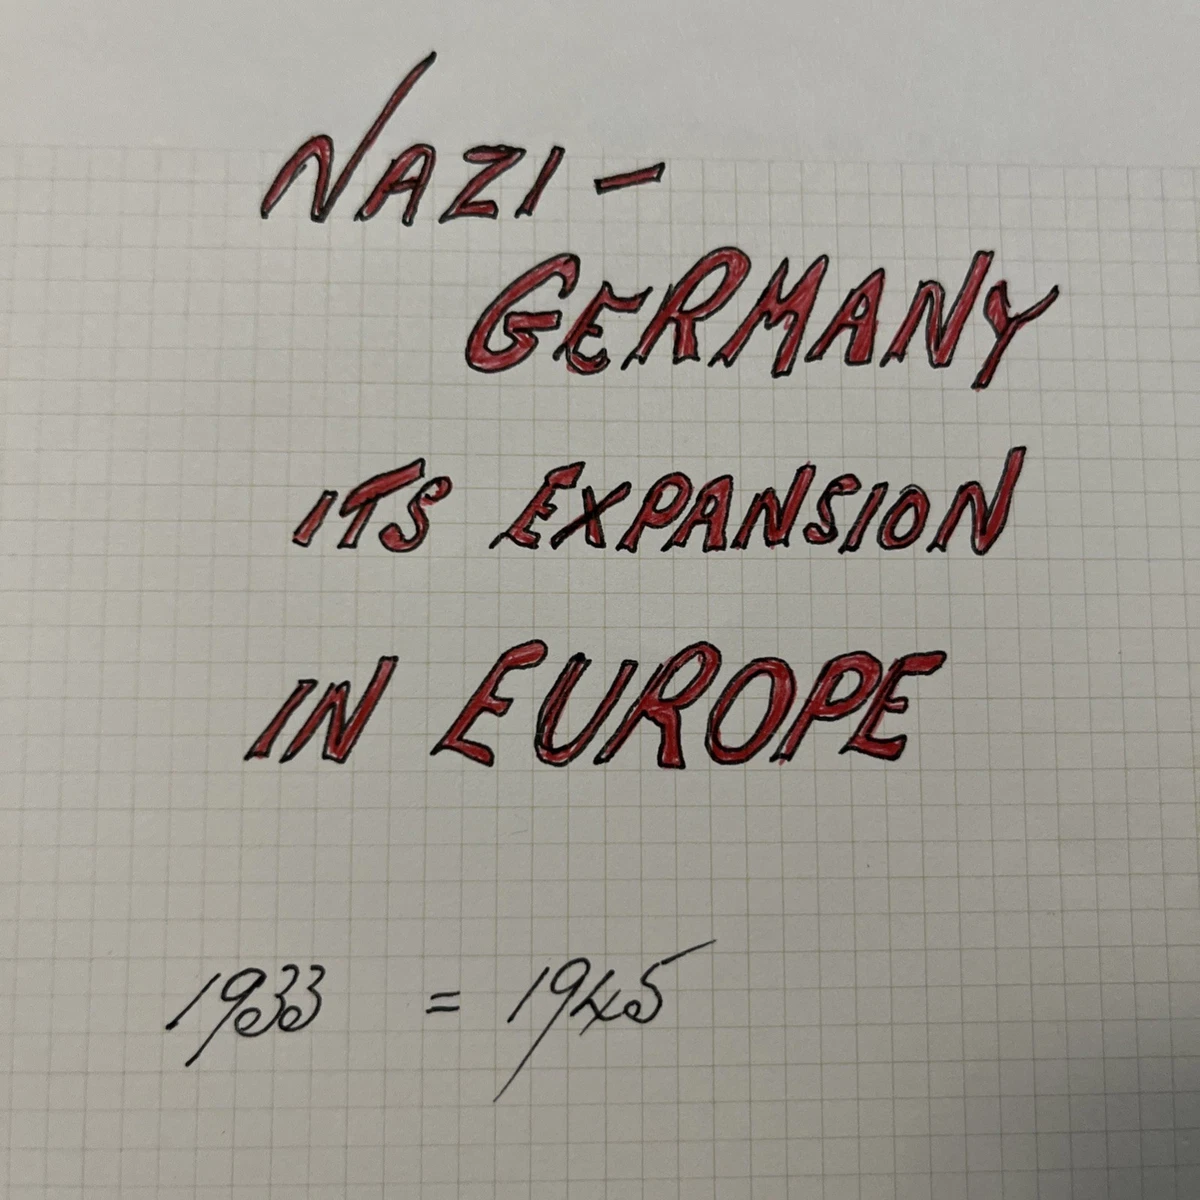 NAZI -
GERMANY
ITS EXPANSION
IN EUROPE
1933 = 1945